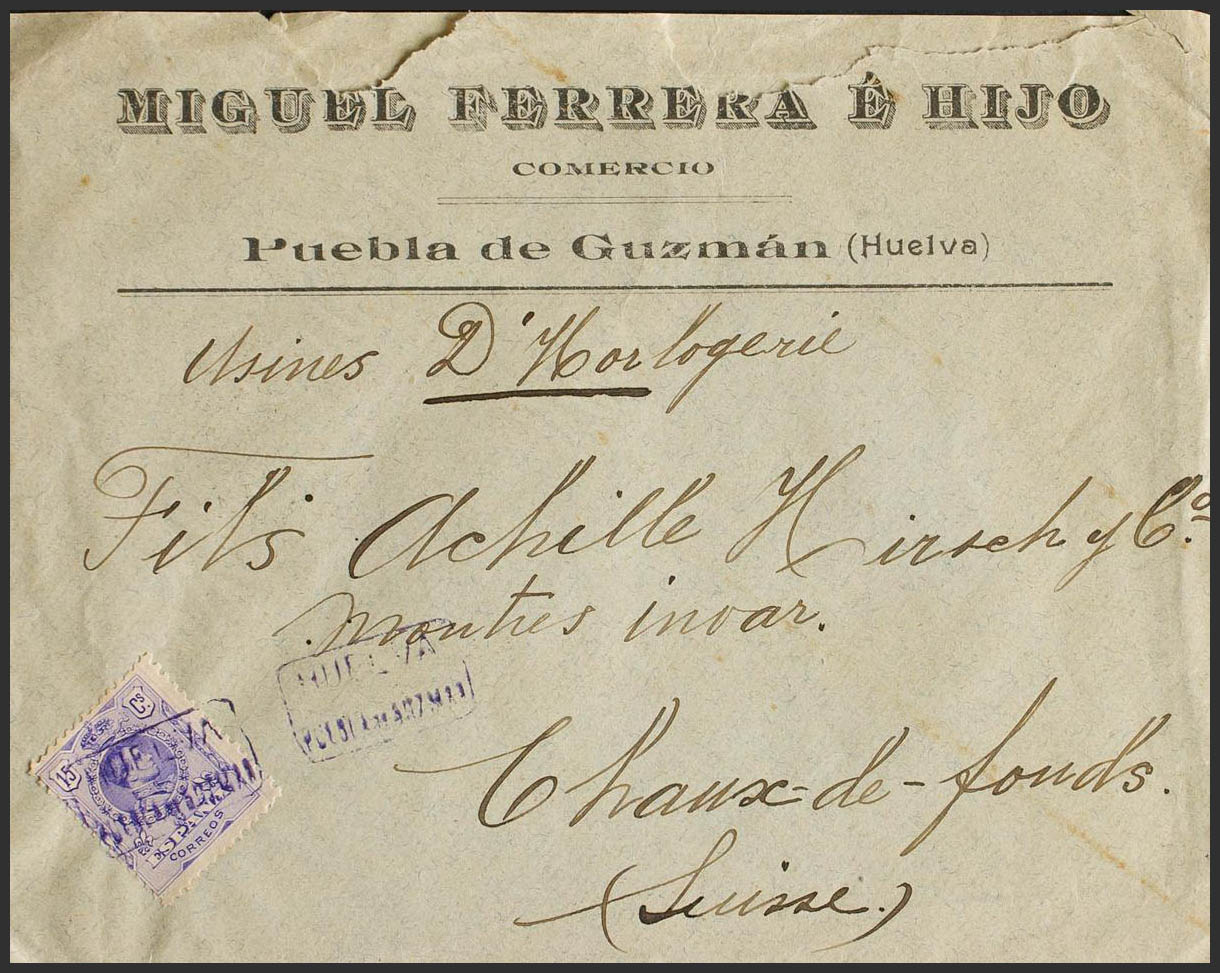 MIGUEL FERRERA É HIJO
COMERCIO
Puebla de Guzmán (Huelva)
Usines D'Horlogerie
Fils Achille Hirsch y Cº.
Montres invar.
HUELVA
Chaux-de-fonds.
(Suisse.)
15 Cs.
ESPAÑA
CORREOS